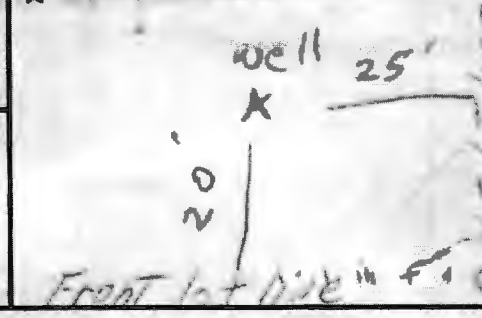 well 25'
X
20'
Front lot line